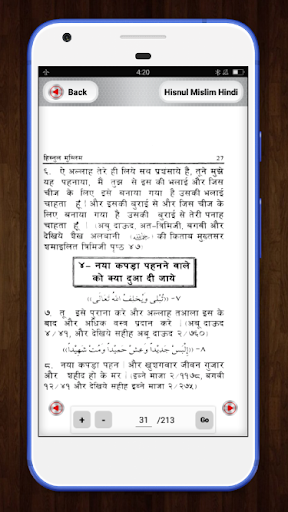 4:20
Back
Hisnul Mislim Hindi
हिस्नुल मुस्लिम 27
६. ऐ अल्लाह तेरे ही लिये सब प्रशंसाये हैं, तूने मुझे
यह पहनाया, मैं तुझ से इस की भलाई और जिस
चीज़ के लिए इसे बनाया गया है उसकी भलाई
चाहता हूँ। और इसकी बुराई से और जिस चीज के
लिए बनाया गया है उसकी बुराई से तेरी पनाह
चाहता हूँ। (अबू दाऊद, अत-त्रिमिजी, बगवी और
देखिये शैख अलबानी की किताब मुख्तसर
शमाइलित त्रिमिजी पृष्ठ ४७)
४- नया कपड़ा पहनने वाले
को क्या दुआ दी जाये
٧- ((تُبْلي وَيُخْلِفُ اللهُ تَعَالَى))
७. तू इसे पुराना करे और अल्लाह तआला इस के
बाद और अधिक वस्त्र प्रदान करे। (अबू दाऊद
४/४१, और देखिये सहीह अबू दाऊद २/७६०)
٨- ((اِلْبَسْ جَدِيْدًا وَعِشْ حَمِيْدًا وَمُتْ شَهِيْدًا))
८. नया कपड़ा पहन। और खुशगवार जीवन गुजार
और शहीद हो के मर। (इब्ने माजा २/११७८, बगवी
१२/४१ और देखिये सहीह इब्ने माजा २/२७५)
+ - 31 /213 Go